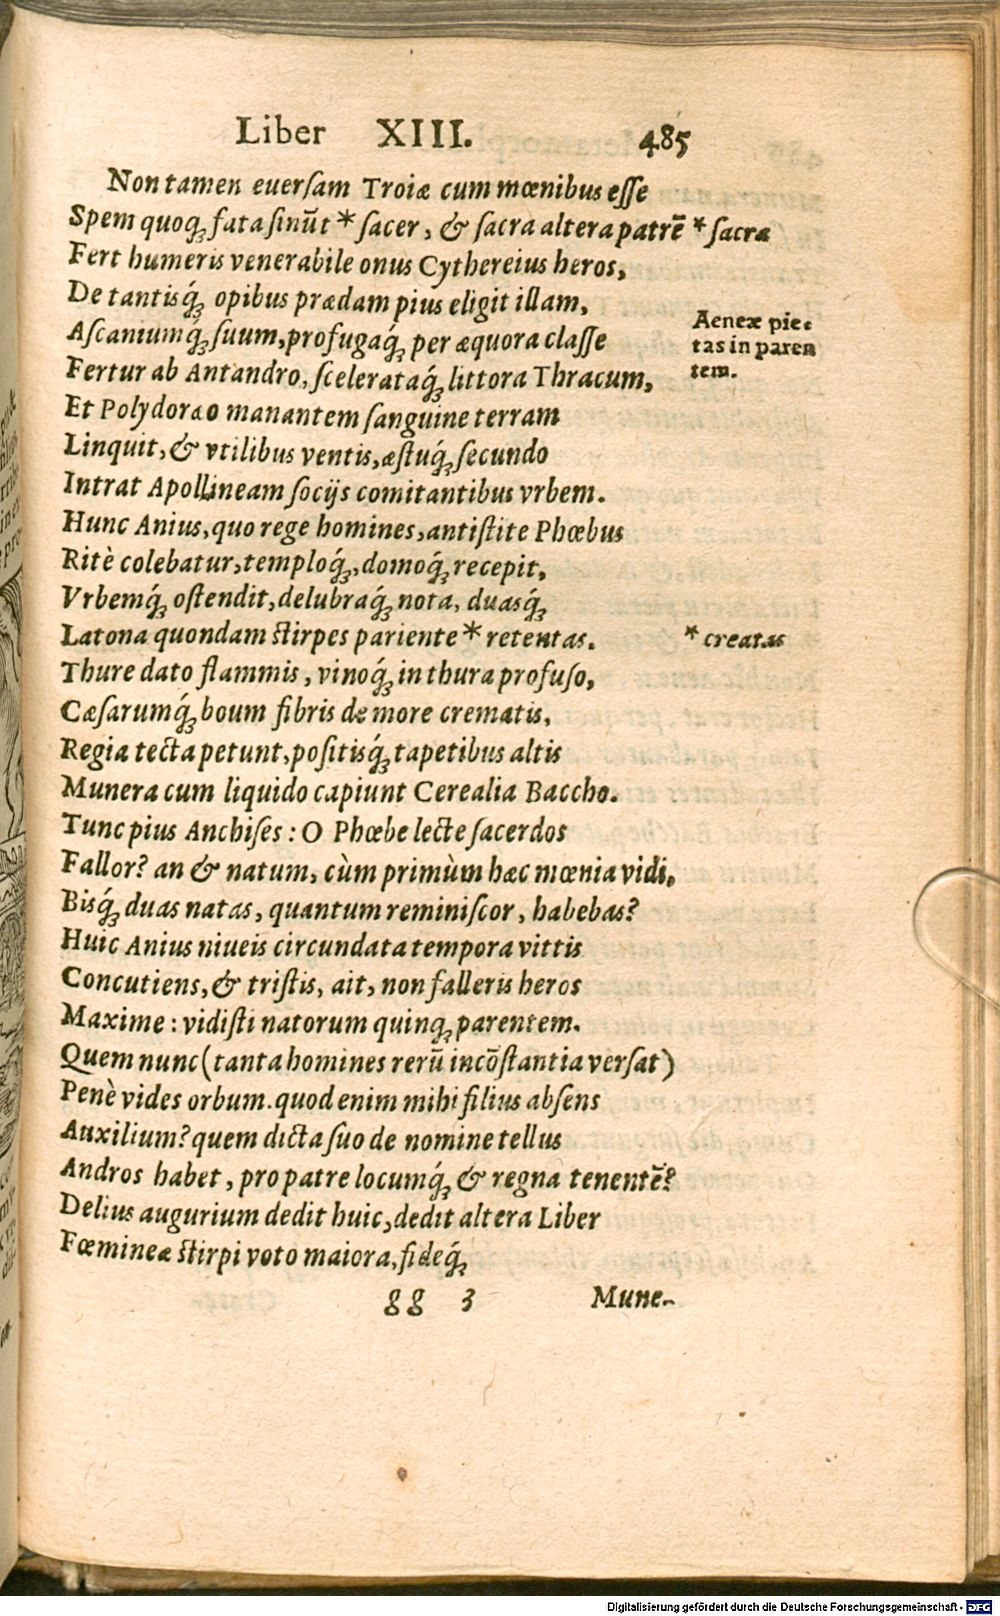 Liber XIII. 485
Non tamen euerſam Troiæ cum mœnibus eſſe
Spem quoq; fata ſinūt * ſacer, & ſacra altera patrē * ſacra
Fert humeris venerabile onus Cythereius heros,
De tantisq́; opibus prædam pius eligit illam,
Aeneæ pie-
tas in paren
tem.
Aſcaniumq́; ſuum, profugaq́; per æquora claſſe
Fertur ab Antandro, ſcelerataq́; littora Thracum,
Et Polydoræo manantem ſanguine terram
Linquit, & vtilibus ventis, æſtuq́; ſecundo
Intrat Apollineam ſocijs comitantibus vrbem.
Hunc Anius, quo rege homines, antiſtite Phœbus
Ritè colebatur, temploq́;, domoq́; recepit,
Vrbemq́; oſtendit, delubraq́; nota, duasq́;
Latona quondam ſtirpes pariente * retentas. * creatas
Thure dato flammis, vinoq́; in thura profuſo,
Cæſarumq́; boum fibris de more crematis,
Regia tecta petunt, poſitisq́; tapetibus altis
Munera cum liquido capiunt Cerealia Baccho.
Tunc pius Anchiſes: O Phœbe lecte ſacerdos
Fallor? an & natum, cùm primùm hæc mœnia vidi,
Bisq́; duas natas, quantum reminiſcor, habebas?
Huic Anius niueis circundata tempora vittis
Concutiens, & triſtis, ait, non falleris heros
Maxime: vidiſti natorum quinq; parentem.
Quem nunc (tanta homines rerū incōſtantia verſat)
Penè vides orbum. quod enim mihi filius abſens
Auxilium? quem dicta ſuo de nomine tellus
Andros habet, pro patre locumq́; & regna tenentē?
Delius augurium dedit huic, dedit altera Liber
Fœmineæ ſtirpi voto maiora, fideq́;
gg 3 Mune-
Digitalisierung gefördert durch die Deutsche Forschungsgemeinschaft - DFG